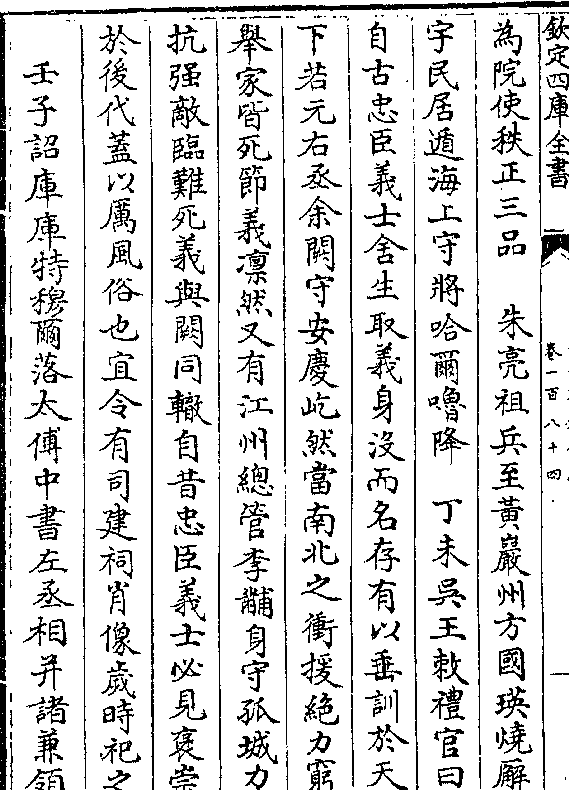 欽定四庫全書
卷一百八十四
為院使秩正三品　朱亮祖兵至黃巖州方國瑛燒廨
宇民居遁海上守將哈爾嚕降　丁未吳王敕禮官曰
自古忠臣義士舍生取義身沒而名存有以垂訓於天
下若元右丞余闕守安慶屹然當南北之衝援絶力窮
舉家皆死節義凛然又有江州總管李黼身守孤城力
抗强敵臨難死義與闕同轍自昔忠臣義士必見褒崇
於後代蓋以厲風俗也宜令有司建祠肖像歲時祀之
壬子詔庫庫特穆爾落太傅中書左丞相并諸兼領